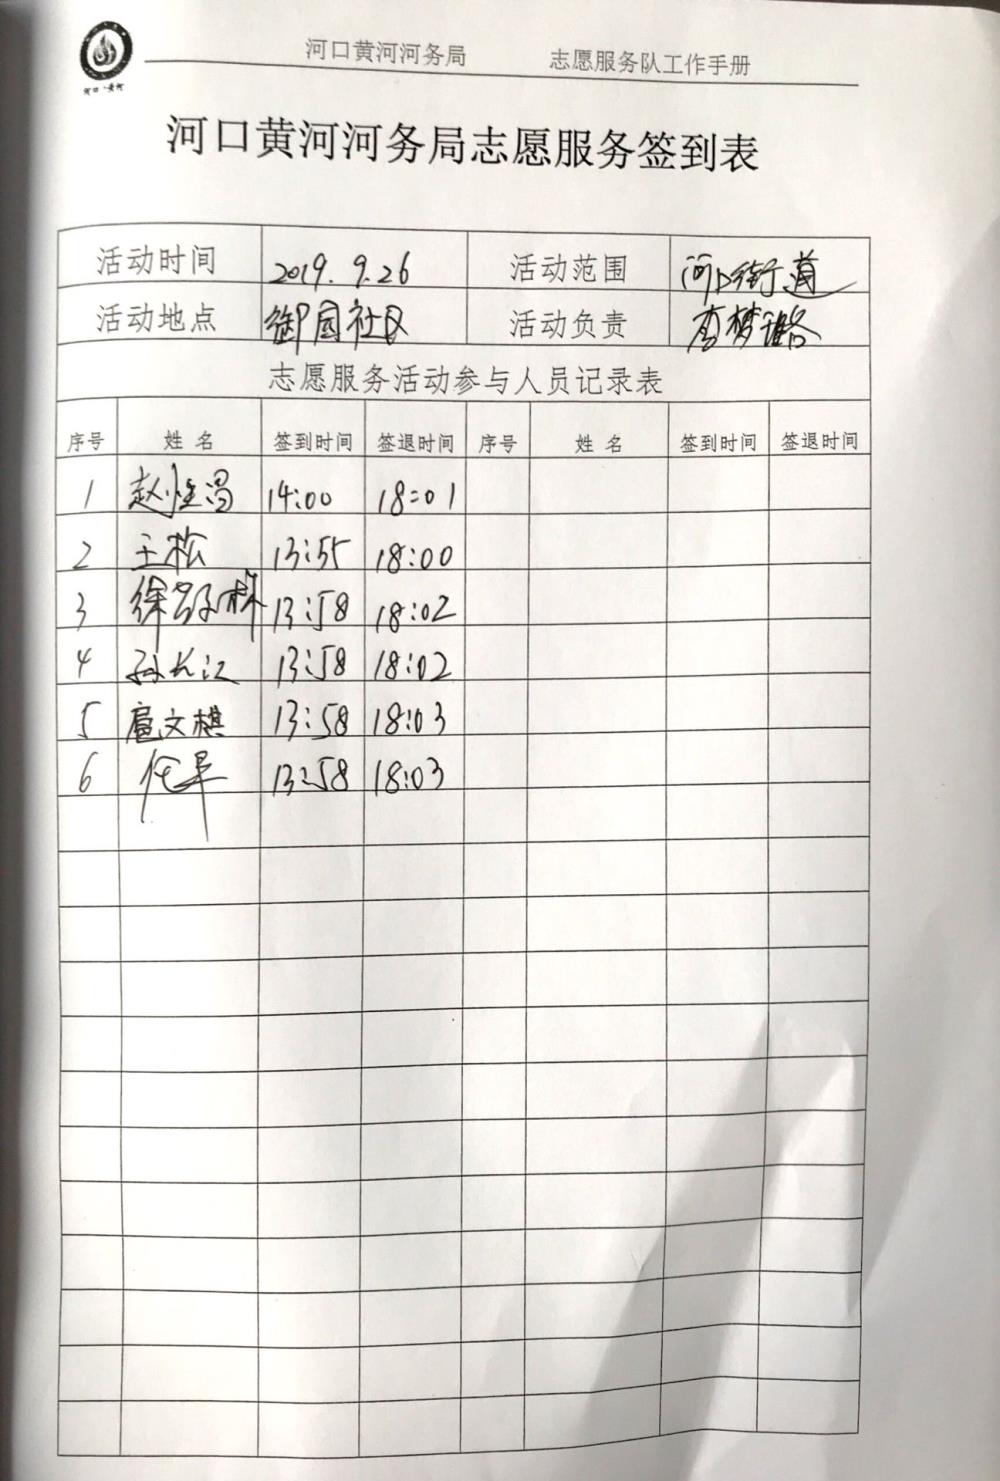 河口黄河河务局 志愿服务队工作手册
河口·黄河
河口黄河河务局志愿服务签到表
活动时间 2019.9.26 活动范围 河口街道
活动地点 御园社区 活动负责 李梦
志愿服务活动参与人员记录表
序号 姓名 签到时间 签退时间 序号 姓名 签到时间 签退时间
1 赵恒昌 14:00 18:01
2 王松 13:55 18:00
3 徐 13:58 18:02
4 孙长江 13:58 18:02
5 扈文棋 13:58 18:03
6 任 13:58 18:03